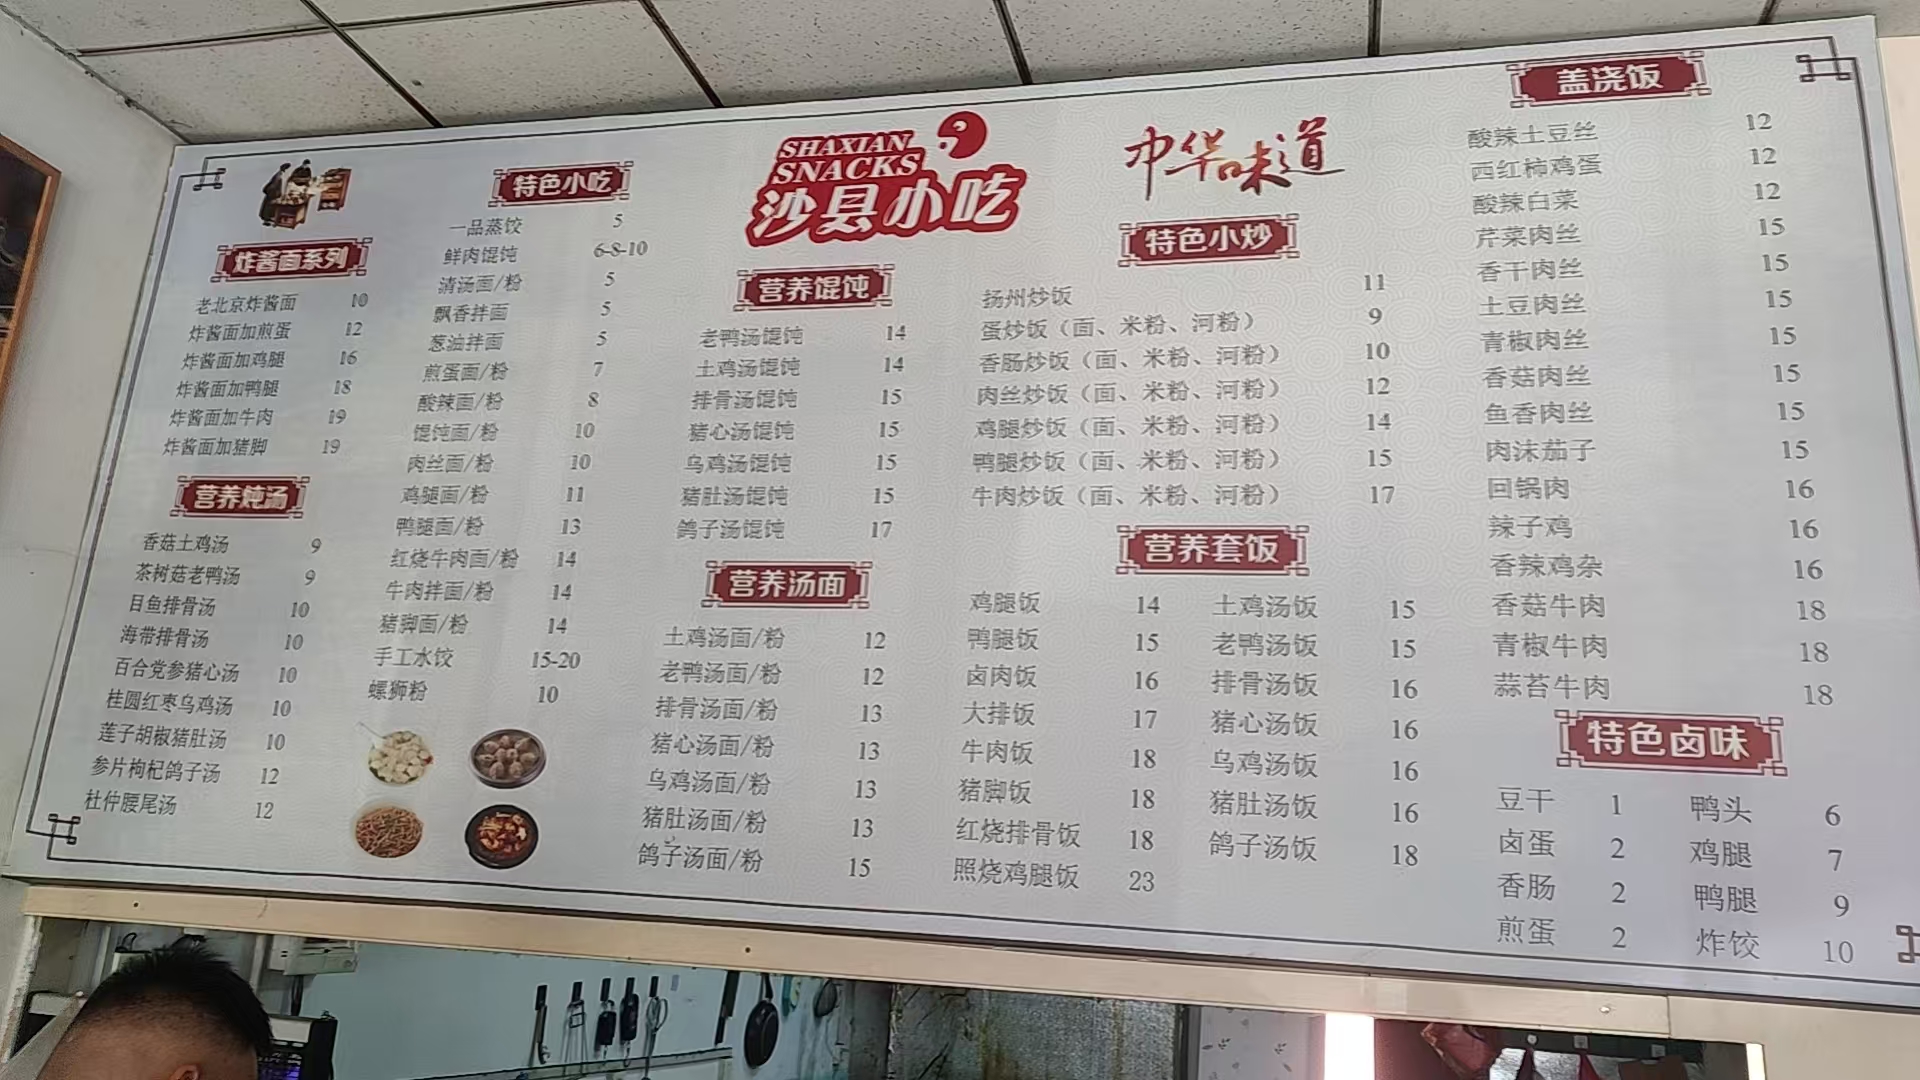 SHAXIAN
SNACKS
沙县小吃
中华味道
炸酱面系列
老北京炸酱面 10
炸酱面加煎蛋 12
炸酱面加鸡腿 16
炸酱面加鸭腿 18
炸酱面加牛肉 19
炸酱面加猪脚 19
营养炖汤
香菇土鸡汤 9
茶树菇老鸭汤 9
目鱼排骨汤 10
海带排骨汤 10
百合党参猪心汤 10
桂圆红枣乌鸡汤 10
莲子胡椒猪肚汤 10
参片枸杞鸽子汤 12
杜仲腰尾汤 12
特色小吃
一品蒸饺 5
鲜肉馄饨 6-8-10
清汤面/粉 5
飘香拌面 5
葱油拌面 5
煎蛋面/粉 7
酸辣面/粉 8
馄饨面/粉 10
肉丝面/粉 10
鸡腿面/粉 11
鸭腿面/粉 13
红烧牛肉面/粉 14
牛肉拌面/粉 14
猪脚面/粉 14
手工水饺 15-20
螺狮粉 10
营养馄饨
老鸭汤馄饨 14
土鸡汤馄饨 14
排骨汤馄饨 15
猪心汤馄饨 15
乌鸡汤馄饨 15
猪肚汤馄饨 15
鸽子汤馄饨 17
营养汤面
土鸡汤面/粉 12
老鸭汤面/粉 12
排骨汤面/粉 13
猪心汤面/粉 13
乌鸡汤面/粉 13
猪肚汤面/粉 13
鸽子汤面/粉 15
特色小炒
扬州炒饭 11
蛋炒饭（面、米粉、河粉） 9
香肠炒饭（面、米粉、河粉） 10
肉丝炒饭（面、米粉、河粉） 12
鸡腿炒饭（面、米粉、河粉） 14
鸭腿炒饭（面、米粉、河粉） 15
牛肉炒饭（面、米粉、河粉） 17
营养套饭
鸡腿饭 14 土鸡汤饭 15
鸭腿饭 15 老鸭汤饭 15
卤肉饭 16 排骨汤饭 16
大排饭 17 猪心汤饭 16
牛肉饭 18 乌鸡汤饭 16
猪脚饭 18 猪肚汤饭 16
红烧排骨饭 18 鸽子汤饭 18
照烧鸡腿饭 23
盖浇饭
酸辣土豆丝 12
西红柿鸡蛋 12
酸辣白菜 12
芹菜肉丝 15
香干肉丝 15
土豆肉丝 15
青椒肉丝 15
香菇肉丝 15
鱼香肉丝 15
肉沫茄子 15
回锅肉 16
辣子鸡 16
香辣鸡杂 16
香菇牛肉 18
青椒牛肉 18
蒜苔牛肉 18
特色卤味
豆干 1 鸭头 6
卤蛋 2 鸡腿 7
香肠 2 鸭腿 9
煎蛋 2 炸饺 10